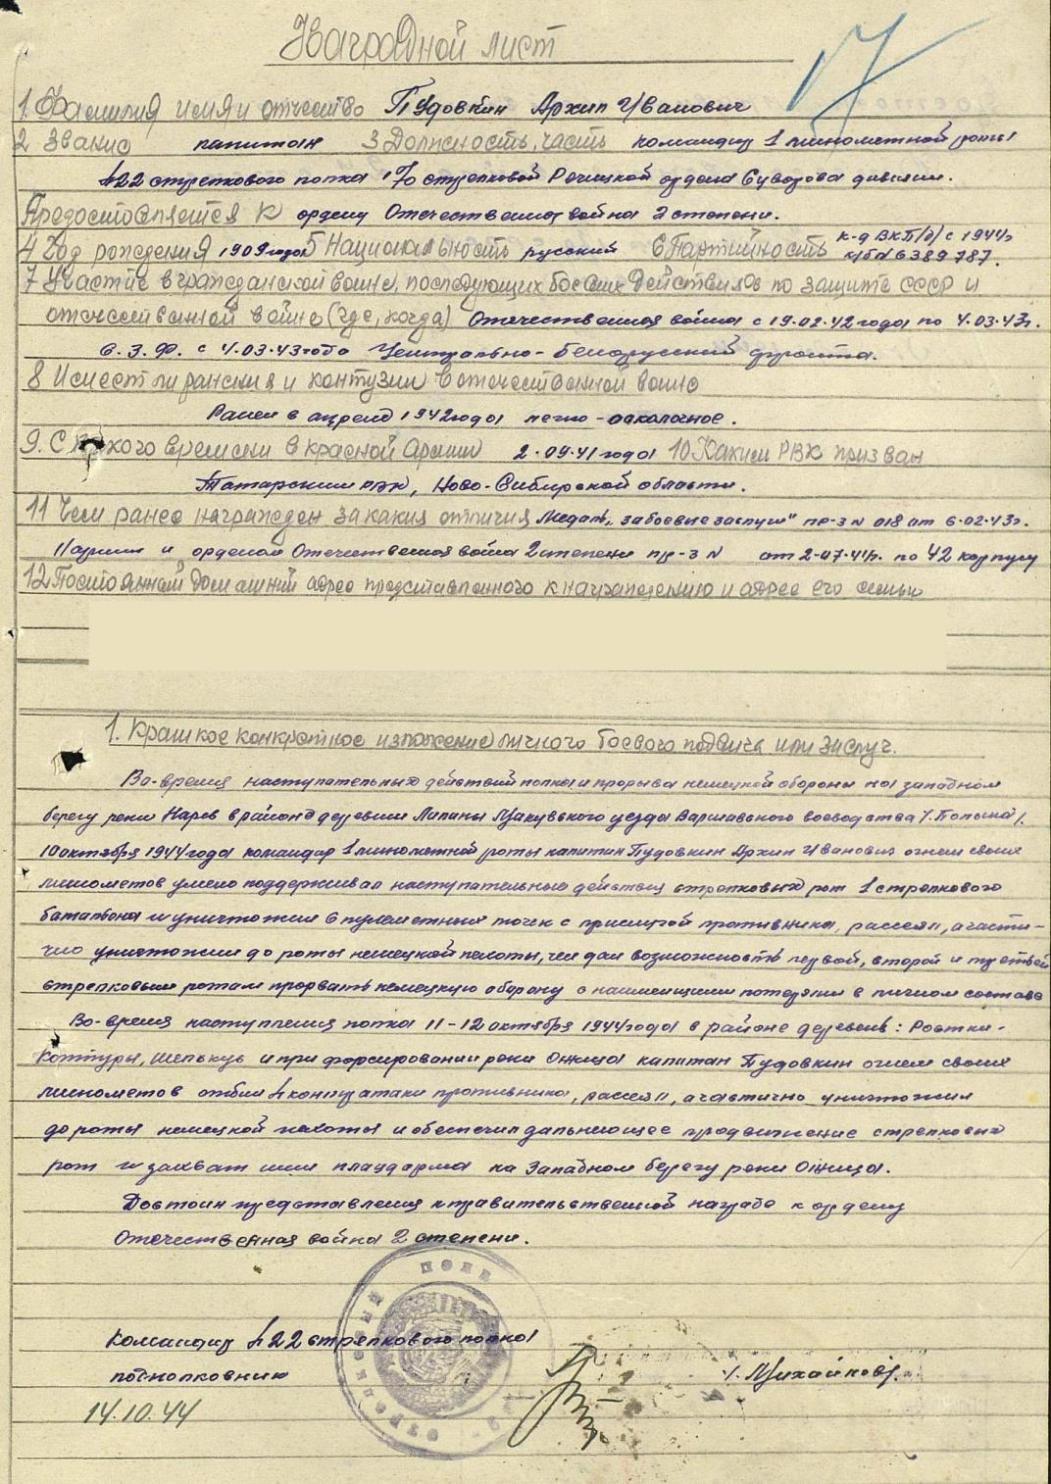 Наградной лист
1. Фамилия имя и отчество Пудовкин Архип Иванович
2 Звание капитан 3 Должность, часть командир 1 минометной роты
422 стрелкового полка 170 стрелковой Речицкой ордена Суворова дивизии.
Предоставляется к ордену Отечественная война 2 степени.
4 Год рождения 1909 года 5 Национальность русский 6 Партийность к-д ВКП/б/ с 1944г
к/б № 6389787.
7 Участие в гражданской войне, последующих боевых действиях по защите СССР и
отечественной войне (где, когда) Отечественная война с 19.02.42 года по 4.03.43г.
С.З.Ф. с 4.03.43 года Центрально-Белорусский фронта.
8 Имеет ли ранения и контузии в отечественной войне
Ранен в апреле 1942 года легко-осколочное.
9. С какого времени в красной Армии 2.09.41 года 10 Каким РВК призван
Татарским РВК, Ново-Сибирской области.
11 Чем ранее награжден за какия отличия Медаль "за боевые заслуги" пр-з N 018 от 6.02.43г.
11 армии и орденом Отечественная война 2 степени пр-з N от 2.07.44г. по 42 корпусу
12 Постоянный домашний адрес представленного к награждению и адрес его семьи
1. Краткое конкретное изложение личного боевого подвига или заслуг.
Во-время наступательных действий полка и прорыва немецкой обороны на западном
берегу реки Нарев в районе деревни Лапаны Макувского уезда Варшавского воеводства /Польша/.
10 октября 1944 года командир 1 минометной роты капитан Пудовкин Архип Иванович огнем своих
минометов умело поддерживал наступательные действия стрелковых рот 1 стрелкового
батальона и уничтожил 6 пулеметных точек с прислугой противника, рассеял, а части-
чно уничтожил до роты немецкой пехоты, чем дал возможность первой, второй и третьей
стрелковым ротам прорвать немецкую оборону с наименьшими потерями в личном составе
Во-время наступления полка 11-12 октября 1944 года в районе деревень: Ростки-
и при форсировании реки Ожица капитан Пудовкин огнем своих
минометов отбил 4 контратаки противника, рассеял, а частично уничтожил
до роты немецкой пехоты и обеспечил дальнейшее продвижение стрелковых
рот и захват ими плацдарма на Западном берегу реки Ожица.
Достоин представления к правительственной награде к ордену
Отечественная война 2 степени.
Командир 422 стрелкового полка
подполковник /. Михайлов/.
14.10.44